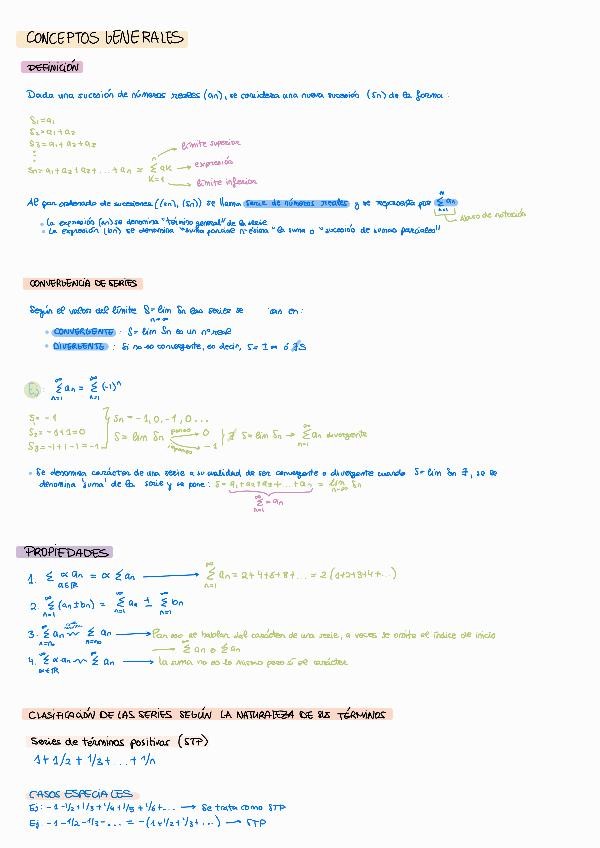 CONCEPTOS GENERALES
DEFINICIÓN
Dada una sucesión de números reales (an), se considera una nueva sucesión (Sn) de la forma:
S1 = a1
S2 = a1 + a2
S3 = a1 + a2 + a3
⋮
Sn = a1 + a2 + a3 + ... + an = Σ ak
n
K=1
límite superior
expresión
límite inferior
Al par ordenado de sucesiones ((an), (Sn)) se llama serie de números reales y se representa por Σ an
abuso de notación
• La expresión (an) se denomina "término general" de la serie
• La expresión (Sn) se denomina "suma parcial n-ésima" la suma o "sucesión de sumas parciales"
CONVERGENCIA DE SERIES
Según el valor del límite S = lim Sn las series se ican en:
n→∞
• CONVERGENTE: S = lim Sn es un nº real
• DIVERGENTE: Si no es convergente, es decir, S = ±∞ ó ∄S
Ej: Σ an = Σ (-1)ⁿ
S1 = -1
S2 = -1+1=0
S3 = -1+1-1=-1
Sn = -1, 0, -1, 0...
S = lim Sn pares → 0 impares → -1 } ∄ S = lim Sn → Σ an divergente
• Se denomina carácter de una serie a su cualidad de ser convergente o divergente cuando S = lim Sn ∃, se le
denomina 'suma' de la serie y se pone: S = a1 + a2 + a3 + ... + an = lim Sn
n→∞
Σ = an
n=1
PROPIEDADES
1. Σ α an = α Σ an → Σ an = 2+4+6+8+... = 2(1+2+3+4+...)
α∈ℝ
2. Σ (an ± bn) = Σ an ± Σ bn
3. Σ an ~ Σ an → Para hablar del carácter de una serie, a veces se omite el índice de inicio
→ Σ an o Σ an
4. Σ α·an ~ Σ an → la suma no es la misma pero sí el carácter
α∈ℝ
CLASIFICACIÓN DE LAS SERIES SEGÚN LA NATURALEZA DE SUS TÉRMINOS
Series de términos positivos (STP)
1 + 1/2 + 1/3 + ... + 1/n
CASOS ESPECIALES
Ej: -1 -1/2 + 1/3 + 1/4 + 1/5 + 1/6 + ... → Se trata como STP
Ej: -1 -1/2 -1/3 - ... = -(1 + 1/2 + 1/3 + ...) → STP